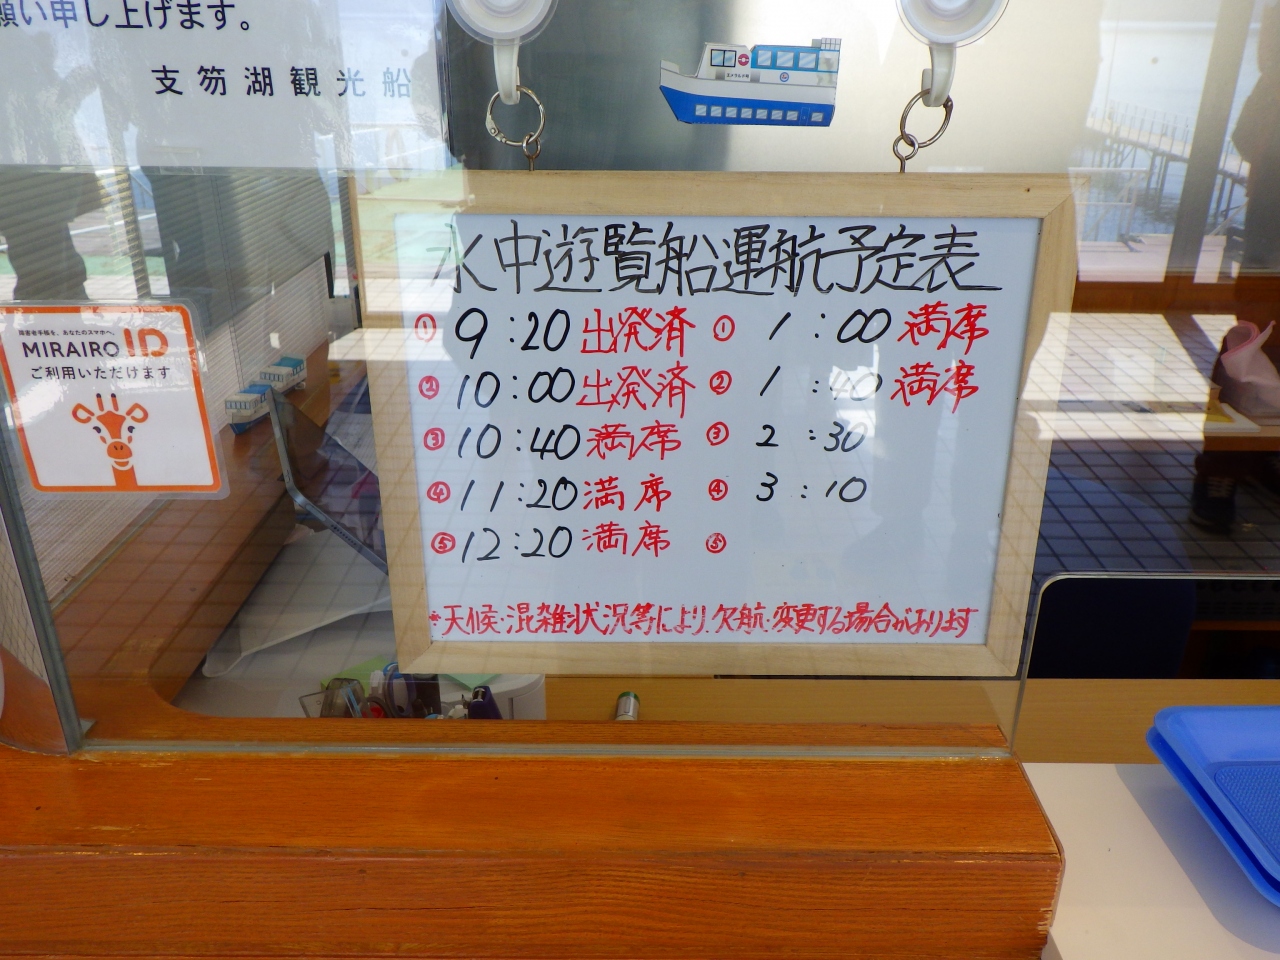 願い申し上げます。
支笏湖観光船
水中遊覧船運航予定表
① 9:20 出発済 ① 1:00 満席
② 10:00 出発済 ② 1:40 満席
③ 10:40 満席 ③ 2:30
④ 11:20 満席 ④ 3:10
⑤ 12:20 満席 ⑤
*天候・混雑状況等により欠航・変更する場合があります
障害者手帳を、あなたのスマホへ。
MIRAIRO ID
ご利用いただけます